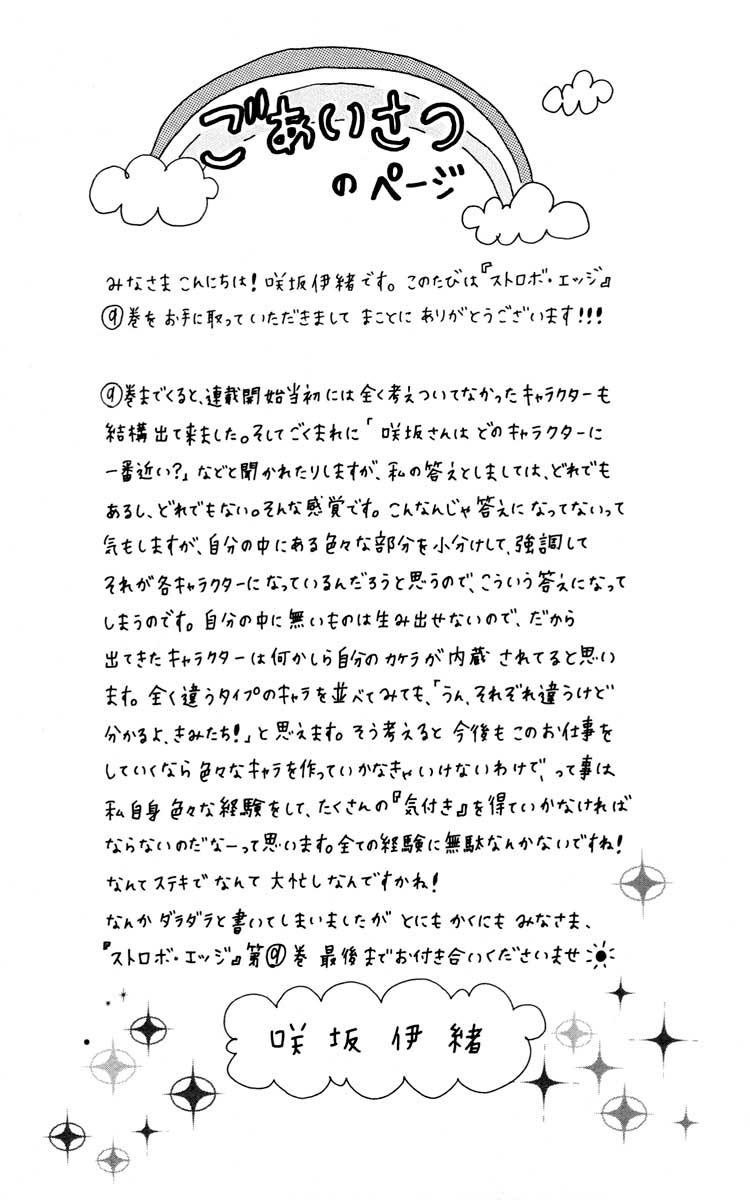 ごあいさつ
のページ
みなさまこんにちは!咲坂伊緒です。このたびは『ストロボ・エッジ』
⑨巻をお手に取っていただきまして まことに ありがとうございます!!!
⑨巻までくると、連載開始当初には全く考えついてなかったキャラクターも
結構出て来ました。そしてごくまれに「咲坂さんは どのキャラクターに
一番近い?」などと聞かれたりしますが、私の答えとしましては、どれでも
あるし、どれでもない。そんな感覚です。こんなんじゃ答えに なってないって
気もしますが、自分の中にある色々な部分を小分けして、強調して
それが各キャラクターになっているんだろうと思うので、こういう答えになって
しまうのです。自分の中に無いものは生み出せないので、だから
出てきたキャラクターは何かしら自分のカケラが内蔵されてると思い
ます。全く違うタイプのキャラを並べてみても、「うん、それぞれ違うけど
分かるよ、きみたち!」と思えます。そう考えると 今後も このお仕事を
していくなら色々なキャラを作っていかなきゃいけないわけで、って事は
私自身 色々な経験をして、たくさんの『気付き』を得ていかなければ
ならないのだなーって思います。全ての経験に無駄なんかないですね!
なんてステキで なんて 大忙しなんですかね!
なんかダラダラと書いてしまいましたが とにもかくにも みなさま、
『ストロボ・エッジ』第⑨巻 最後までお付き合いくださいませ
咲坂伊緒